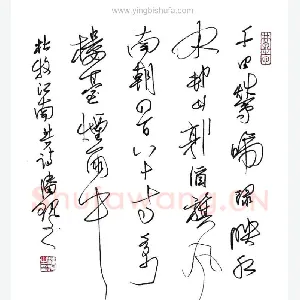 www.yingbishufa.com
千里莺啼绿映红
水村山郭酒旗风
南朝四百八十寺多少
楼台烟雨中
杜牧江南春诗
Shufawang.cn